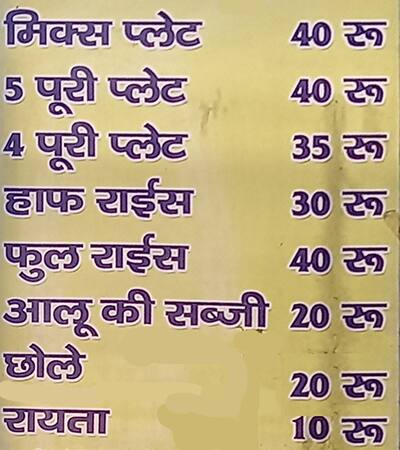 मिक्स प्लेट 40 रू
5 पूरी प्लेट 40 रू
4 पूरी प्लेट 35 रू
हाफ राईस 30 रू
फुल राईस 40 रू
आलू की सब्जी 20 रू
छोले 20 रू
रायता 10 रू